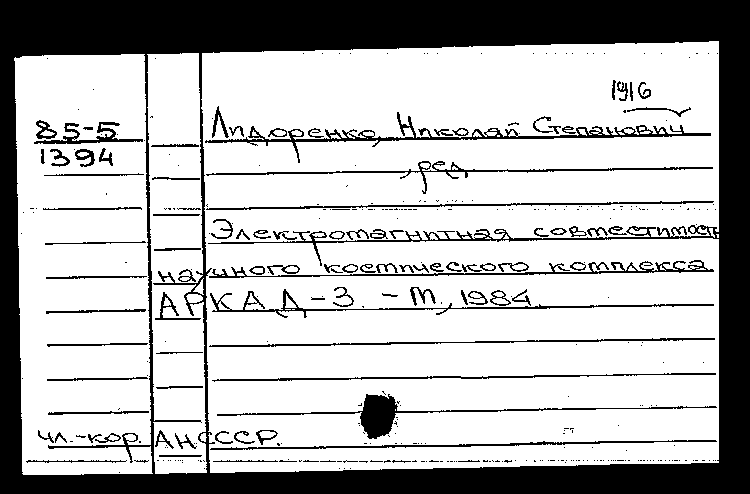 1916
85-5 Лидоренко, Николай Степанович
1394
, ред.
Электромагнитная совместимость
научного космического комплекса
АРКАД-3. - М., 1984.
чл.-кор. АН СССР.